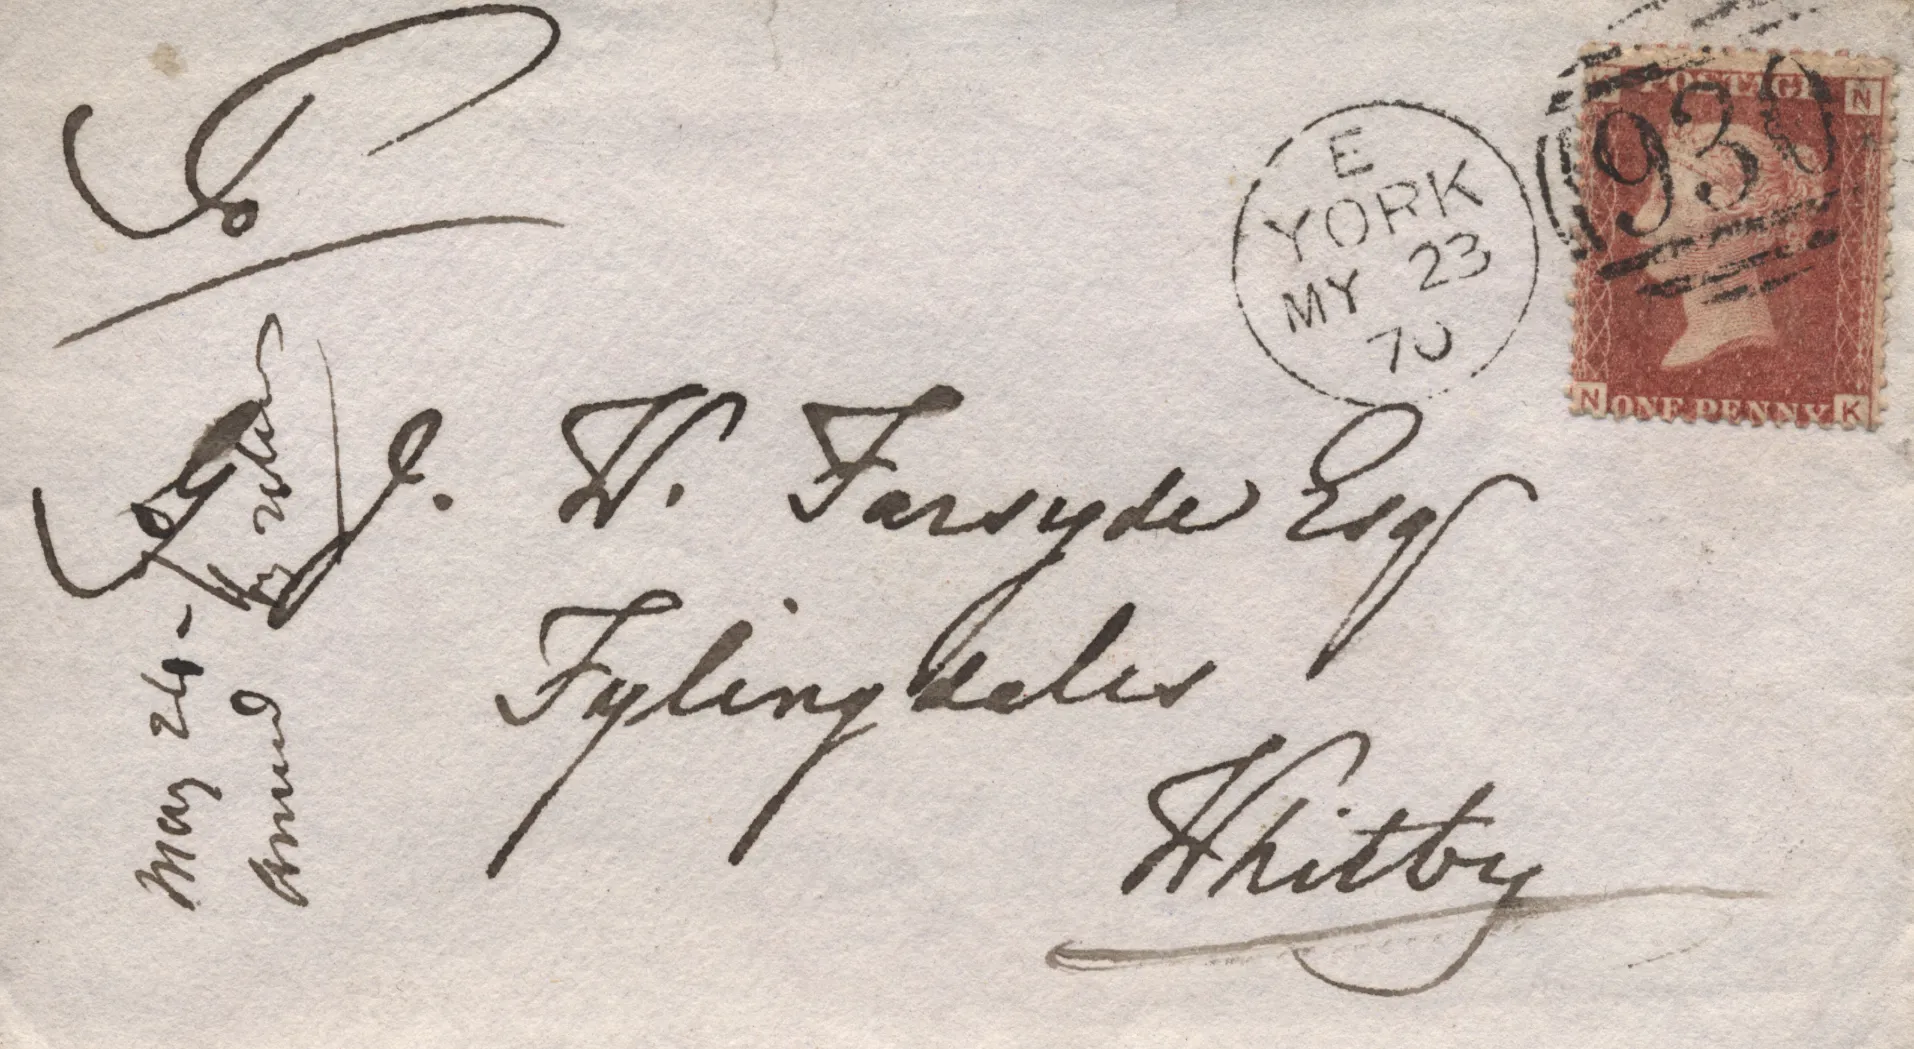 E
YORK
MY 23
70
930
POSTAGE
N
N ONE PENNY K
J. W. Farsyde Esq
Fylingdales
Whitby
May 24 -